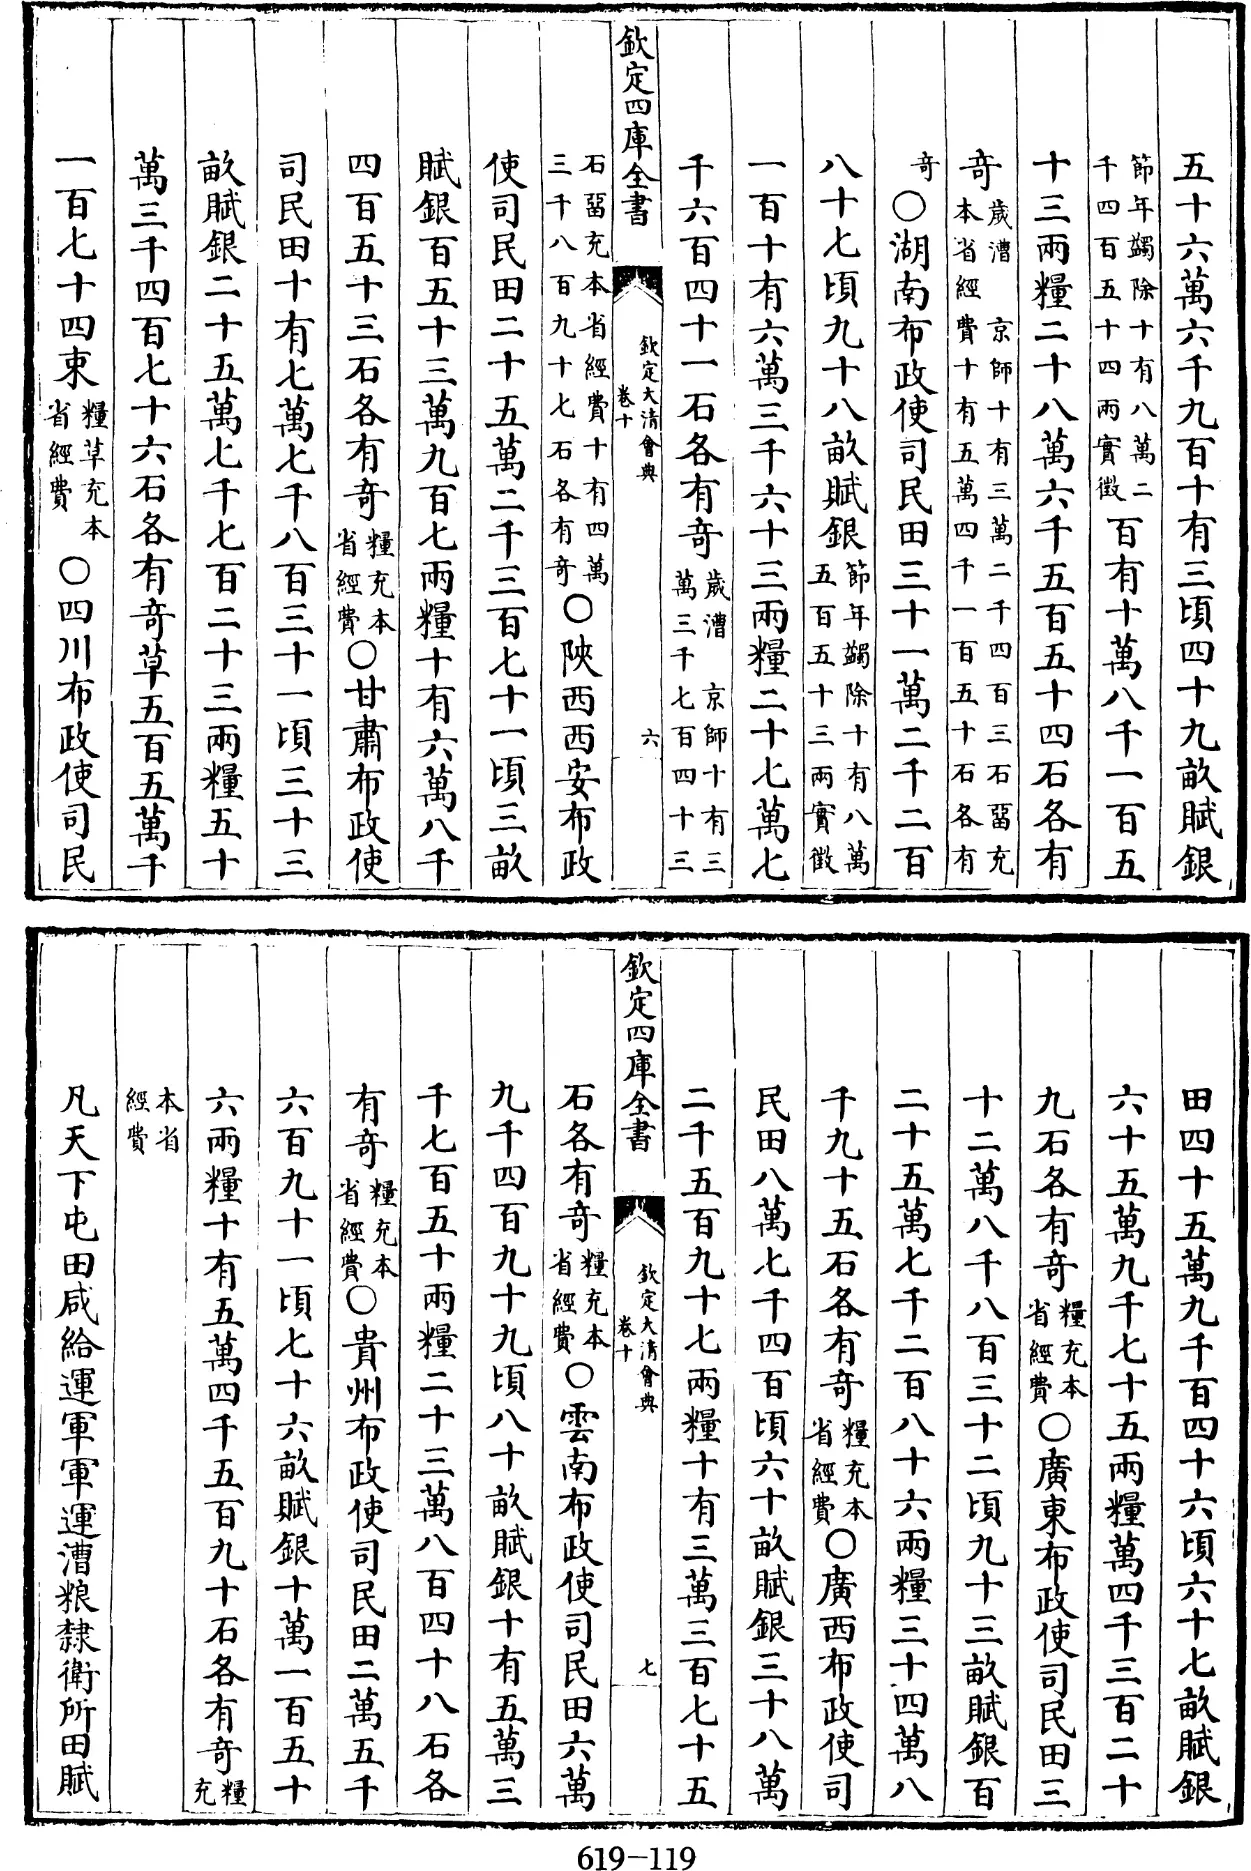 五十六萬六千九百十有三頃四十九畝賦銀
節年蠲除十有八萬二
千四百五十四兩實徵
百有十萬八千一百五
十三兩糧二十八萬六千五百五十四石各有
奇
歲漕 京師十有三萬二千四百三石畱充
本省經費十有五萬四千一百五十石各有
奇
○湖南布政使司民田三十一萬二千二百
八十七頃九十八畝賦銀
節年蠲除十有八萬
五百五十三兩實徵
一百十有六萬三千六十三兩糧二十七萬七
千六百四十一石各有奇
歲漕 京師十有三
萬三千七百四十三
欽定四庫全書
欽定大清會典
卷十
六
石畱充本省經費十有四萬
三千八百九十七石各有奇
○陜西西安布政
使司民田二十五萬二千三百七十一頃三畝
賦銀百五十三萬九百七兩糧十有六萬八千
四百五十三石各有奇
糧充本
省經費
○甘肅布政使
司民田十有七萬七千八百三十一頃三十三
畝賦銀二十五萬七千七百二十三兩糧五十
萬三千四百七十六石各有奇草五百五萬千
一百七十四束
糧草充本
省經費
○四川布政使司民
田四十五萬九千百四十六頃六十七畝賦銀
六十五萬九千七十五兩糧萬四千三百二十
九石各有奇
糧充本
省經費
○廣東布政使司民田三
十二萬八千八百三十二頃九十三畝賦銀百
二十五萬七千二百八十六兩糧三十四萬八
千九十五石各有奇
糧充本
省經費
○廣西布政使司
民田八萬七千四百頃六十畝賦銀三十八萬
二千五百九十七兩糧十有三萬三百七十五
欽定四庫全書
欽定大清會典
卷十
七
石各有奇
糧充本
省經費
○雲南布政使司民田六萬
九千四百九十九頃八十畝賦銀十有五萬三
千七百五十兩糧二十三萬八百四十八石各
有奇
糧充本
省經費
○貴州布政使司民田二萬五千
六百九十一頃七十六畝賦銀十萬一百五十
六兩糧十有五萬四千五百九十石各有奇
糧
充
本省
經費
凡天下屯田咸給運軍軍運漕粮隸衛所田賦
619-119